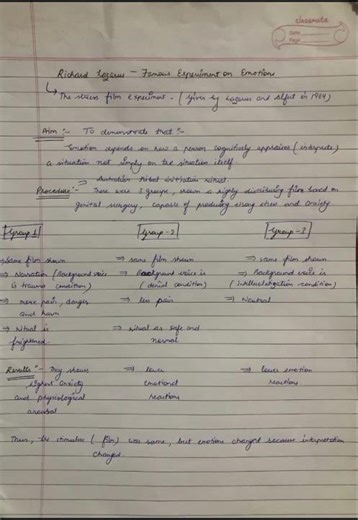 classmate
Date
Page
Richard Lazarus - Famous Experiment on Emotions
↳ The stress film experiment - (Given by Lazarus and Alfert in 1964)
Aim :- To demonstrate that :-
Emotion depends on how a person cognitively appraises (interprets)
a situation not simply on the situation itself
⇒ Australian tribal initiation ritual.
Procedure :- There were 3 groups, shown a highly disturbing film based on
genital surgery, capable of producing strong stress and anxiety.
Group 1 Group - 2 Group - 3
⇒ Same film shown ⇒ same film shown ⇒ same film shown
⇒ Narration (Background voice ⇒ Background voice is ⇒ Background voice is
is trauma condition) (denial condition) (intellectualization condition)
⇒ more pain, danger ⇒ less pain ⇒ Neutral
and harm
⇒ ritual is ⇒ ritual as safe and
frightened normal
Results :- They shows ⇒ lower ⇒ lower emotion
highest anxiety emotional reactions
and physiological reactions
arousal
Thus, the stimulus (film) was same, but emotions changed because interpretation
changed